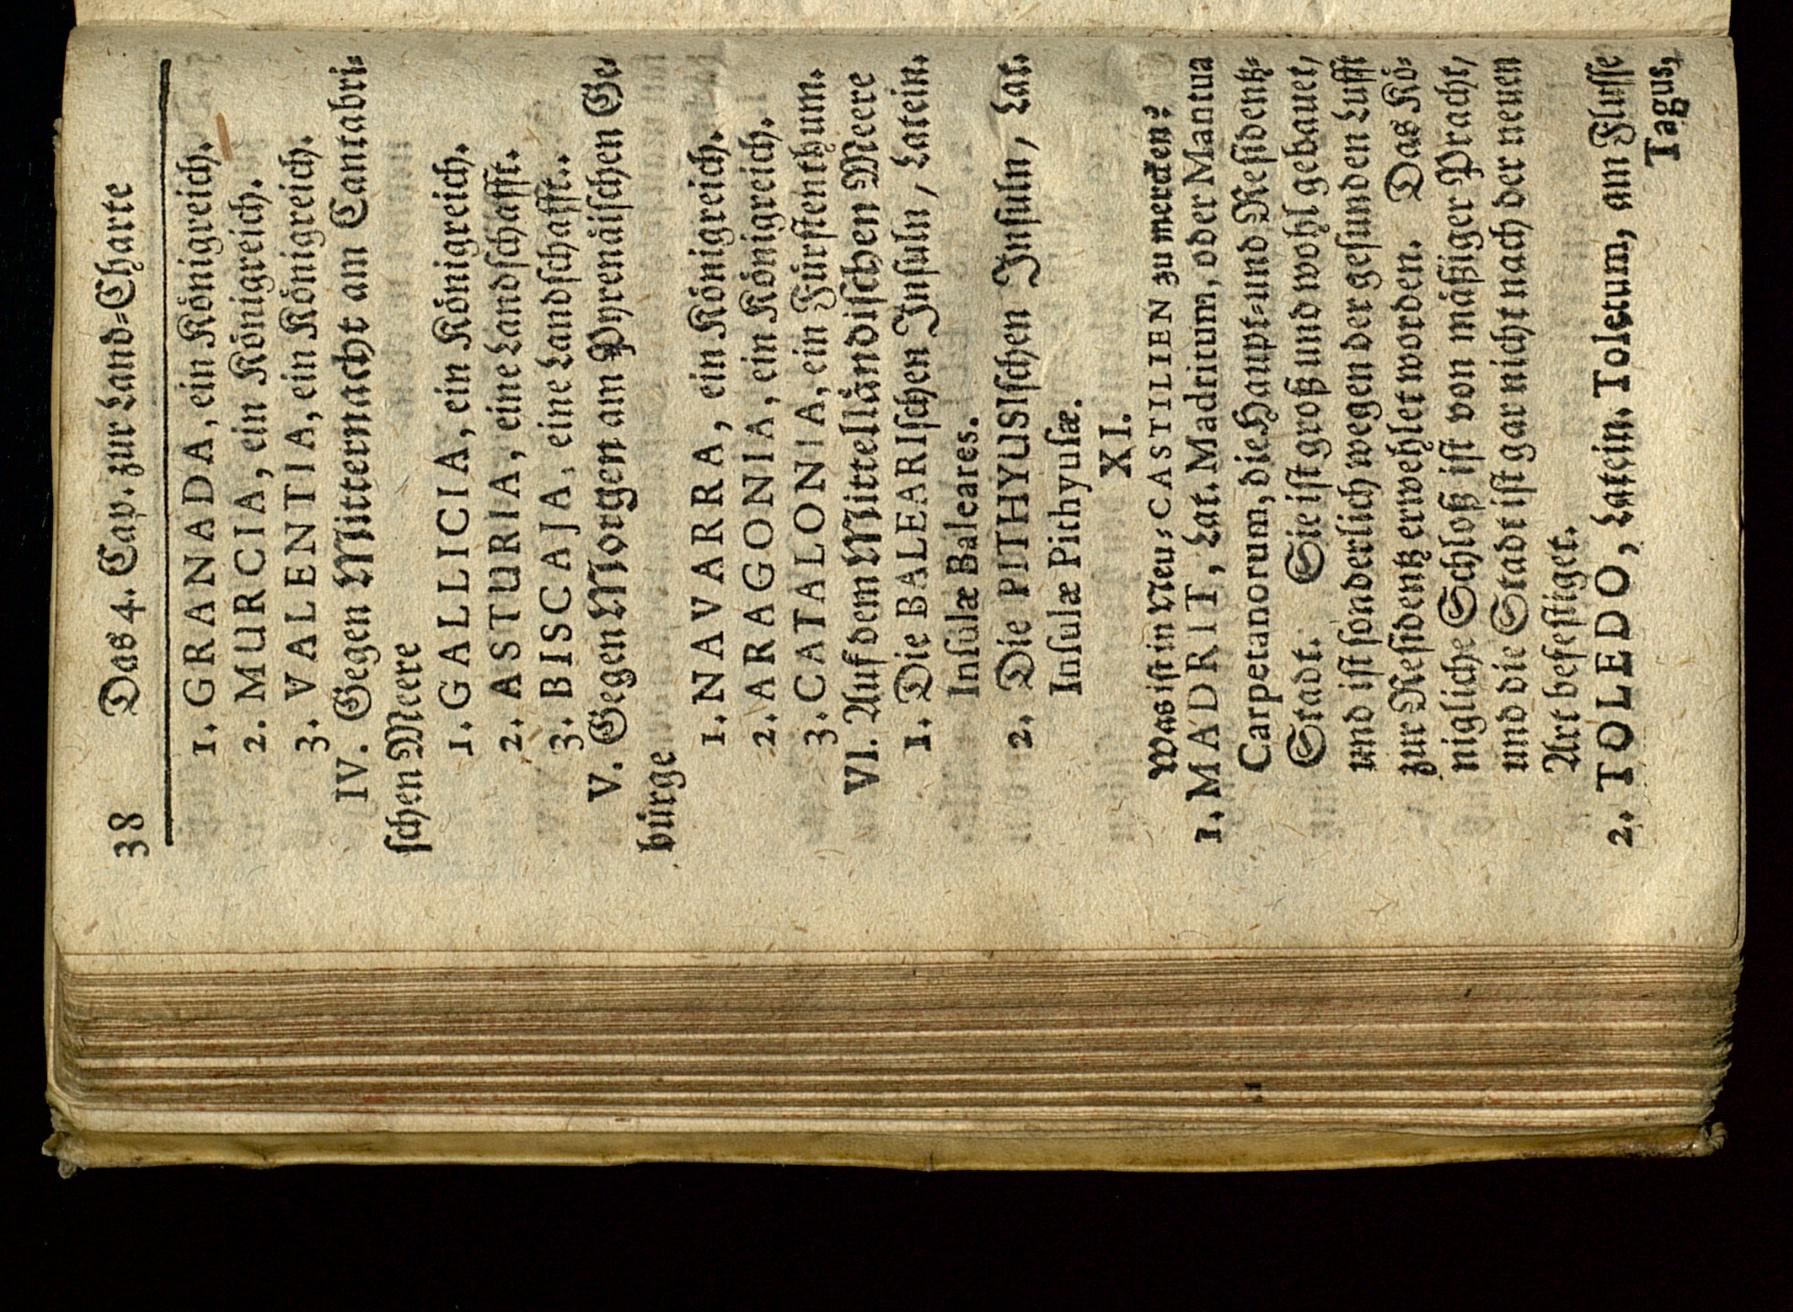 38 Das 4. Cap. zur Land-Charte
1. GRANADA, ein Königreich.
2. MURCIA, ein Königreich.
3. VALENTIA, ein Königreich.
IV. Gegen Mitternacht am Cantabri-
schen Meere
1. GALLICIA, ein Königreich.
2. ASTURIA, eine Landschafft.
3. BISCAJA, eine Landschafft.
V. Gegen Morgen am Pyrenäischen Ge-
bürge
1. NAVARRA, ein Königreich.
2. ARAGONIA, ein Königreich.
3. CATALONIA, ein Fürstenthum.
VI. Auf dem Mittelländischen Meere
1. Die BALEARIschen Insuln, Latein.
Insulæ Baleares.
2. Die PITHYUSIschen Insuln, Lat.
Insulæ Pithyusæ.
XI.
Was ist in Neu-CASTILIEN zu mercken?
1. MADRIT, Lat. Madritum, oder Mantua
Carpetanorum, die Haupt-und Residentz-
Stadt. Sie ist groß und wohl gebauet,
und ist sonderlich wegen der gesunden Lufft
zur Residentz erwehlet worden. Das Kö-
nigliche Schloß ist von mäßiger Pracht,
und die Stadt ist gar nicht nach der neuen
Art befestiget.
2. TOLEDO, Latein. Toletum, am Flusse
Tagus,